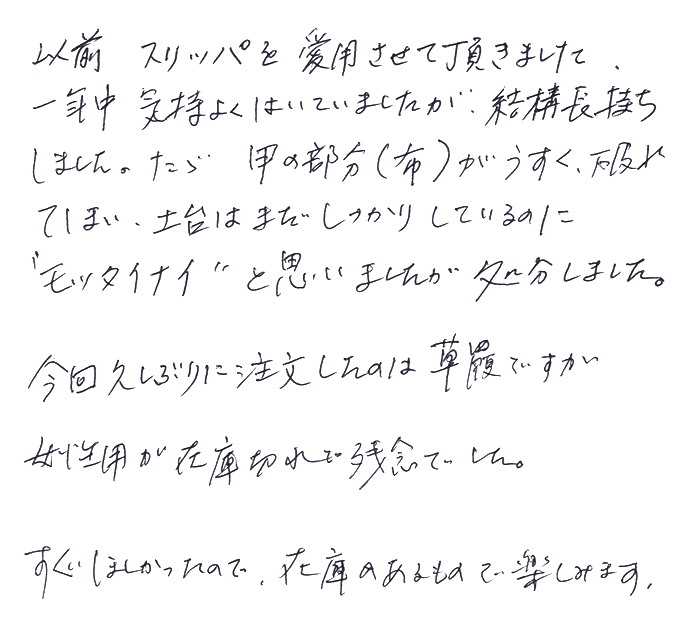 以前 スリッパを 愛用させて頂きました、
一年中 気持よくはいていましたが、結構長持ち
しました。ただ 甲の部分(布)がうすく、破れ
てしまい、土台はまだしっかりしているのに
"モッタイナイ"と思いましたが処分しました。
今回久しぶりに注文したのは 草履ですが
女性用が在庫切れで残念でした。
すぐほしかったので、在庫のあるもので楽しみます、